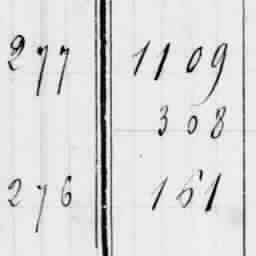 277 1109
308
276 151